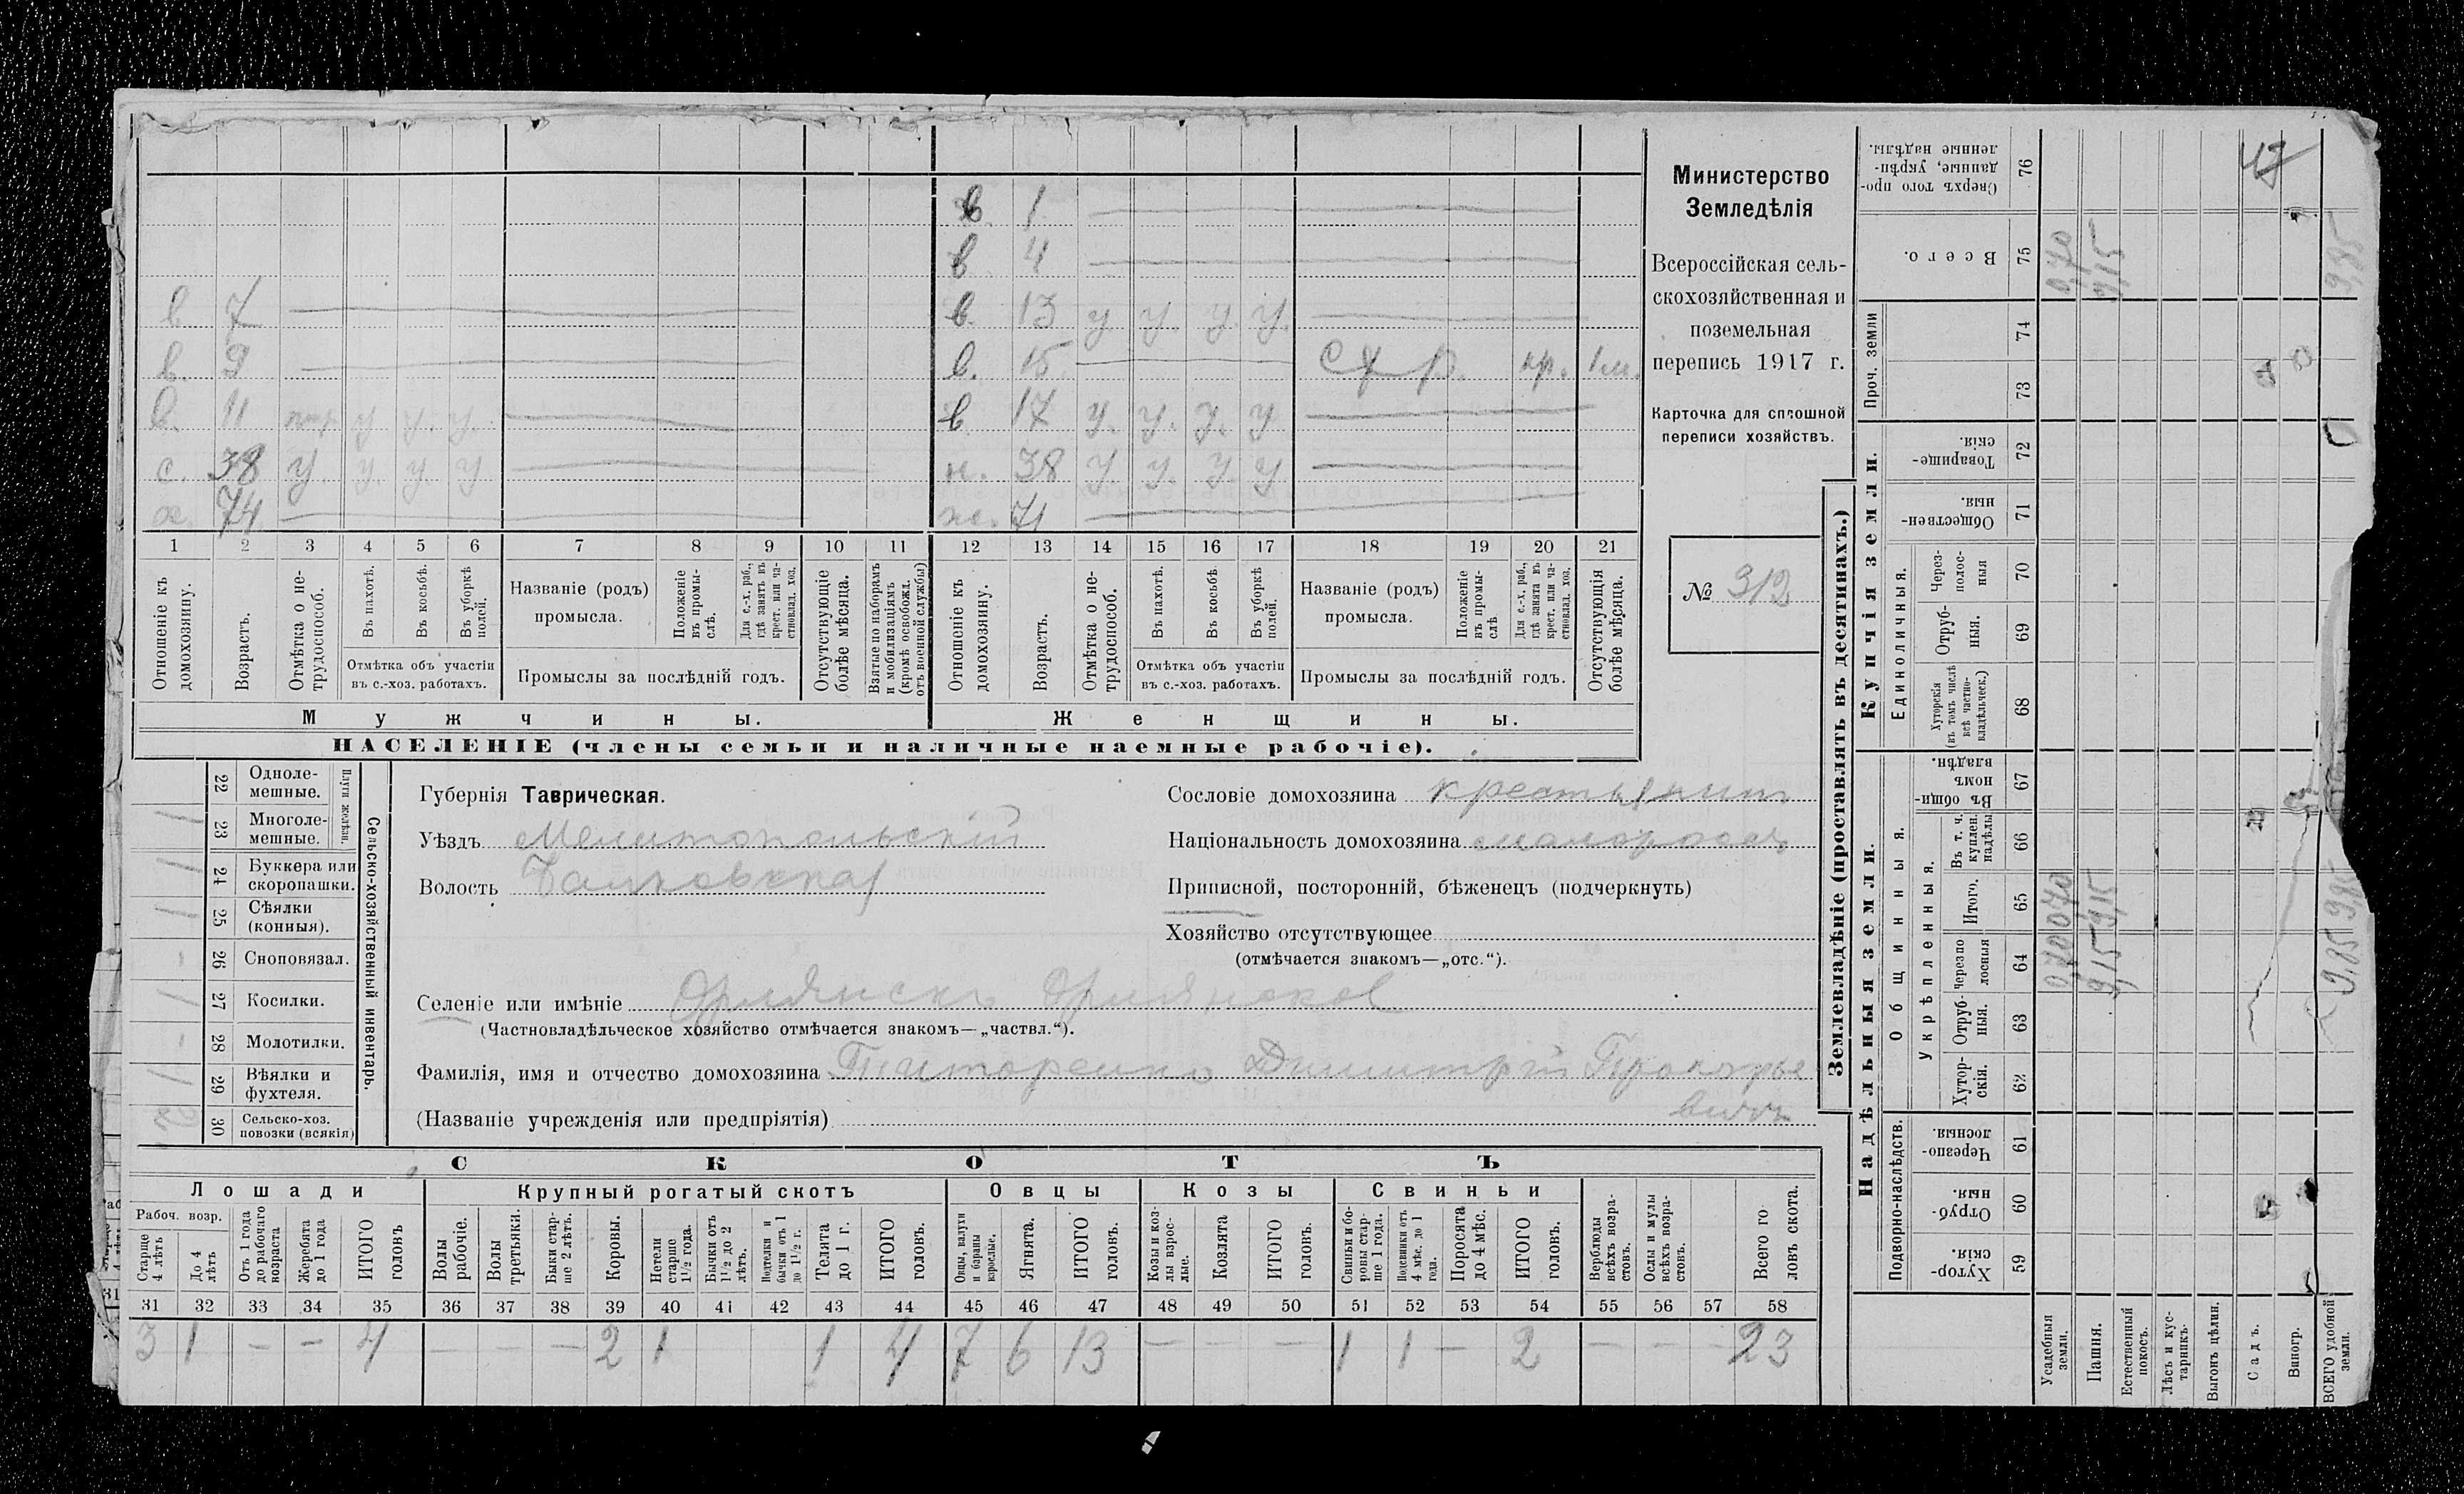 в. 1
в 4
в 7 в. 13 у. у. у. у.
в. 9 в. 15 пр. 1 м.
в. 11 у у. у. в 17 у. у. у. у
с. 38 у. у. у. у 38 у. у. у. у
х. 74 71
1 2 3 4 5 6 7 8 9 10 11 12 13 14 15 16 17 18 19 20 21
Отношеніе къ домохозяину.
Возрастъ.
Отмѣтка о не-трудоспособ.
Въ пахотѣ.
Въ косьбѣ.
Въ уборкѣ полей.
Отмѣтка объ участіи въ с.-хоз. работахъ.
Названіе (родъ) промысла.
Положеніе въ промы-слѣ.
Для с.-х. раб., гдѣ занятъ въ крест. или ча-стновлад. хоз.
Промыслы за послѣдній годъ.
Отсутствующіе болѣе мѣсяца.
Взятые по наборамъ и мобилизаціямъ (кромѣ освобожд. отъ военной службы)
Отношеніе къ домохозяину.
Возрастъ.
Отмѣтка о не-трудоспособ.
Въ пахотѣ.
Въ косьбѣ.
Въ уборкѣ полей.
Отмѣтка объ участіи въ с.-хоз. работахъ.
Названіе (родъ) промысла.
Положеніе въ промы-слѣ.
Для с.-х. раб., гдѣ занята въ крест. или ча-стновлад. хоз.
Промыслы за послѣдній годъ.
Отсутствующія болѣе мѣсяца.
Мужчины. Женщины.
НАСЕЛЕНІЕ (члены семьи и наличные наемные рабочіе).
Министерство
Земледѣлія
Всероссійская сель-
скохозяйственная и
поземельная
перепись 1917 г.
Карточка для сплошной
переписи хозяйствъ.
№ 312
Сельско-хозяйственный инвентарь.
Плуги желѣзн.
22 Одноле-мешные.
1 23 Многоле-мешные.
1 24 Буккера или скоропашки.
1 25 Сѣялки (конныя).
- 26 Сноповязал.
1 27 Косилки.
- 28 Молотилки.
1 29 Вѣялки и фухтеля.
30 Сельско-хоз. повозки (всякія)
Губернія Таврическая.
Уѣздъ Мелитопольскій
Волость
Сословіе домохозяина крестьянинъ
Національность домохозяина малороссъ
Приписной, посторонній, бѣженецъ (подчеркнуть)
Хозяйство отсутствующее
(отмѣчается знакомъ—„отс.“).
Селеніе или имѣніе Орлянскъ Орлянское
(Частновладѣльческое хозяйство отмѣчается знакомъ—„частвл.“).
Фамилія, имя и отчество домохозяина Титоренко Димитрій Прокофье
вичъ
(Названіе учрежденія или предпріятія)
СКОТЪ
Лошади Крупный рогатый скотъ Овцы Козы Свиньи
Рабоч. возр.
Старше 4 лѣтъ
До 4 лѣтъ
Отъ 1 года до рабочаго возраста
Жеребята до 1 года
ИТОГО головъ
Волы рабочіе.
Волы третьяки.
Быки стар-ше 2 лѣтъ.
Коровы.
Нетели старше 1½ года.
Бычки отъ 1½ до 2 лѣтъ.
Подтелки и бычки отъ 1 до 1½ г.
Телята до 1 г.
ИТОГО головъ.
Овцы, валухи и бараны взрослые.
Ягнята.
ИТОГО головъ.
Козы и коз-лы взрос-лые.
Козлята
ИТОГО головъ.
Свиньи и бо-ровы стар-ше 1 года.
Подсвинки отъ 4 мѣс. до 1 года.
Поросята до 4 мѣс.
ИТОГО головъ.
Верблюды всѣхъ возра-стовъ.
Ослы и мулы всѣхъ возра-стовъ.
Всего го ловъ скота.
31 32 33 34 35 36 37 38 39 40 41 42 43 44 45 46 47 48 49 50 51 52 53 54 55 56 57 58
3 1 - - 4 - - - 2 1 1 4 7 6 13 - - - 1 1 - 2 - - - 23
Землевладѣніе (проставлять въ десятинахъ.)
Купчія земли.
Надѣльныя земли.
76 Сверхъ того про-данные, укрѣп-ленные надѣлы.
75 Всего. 0,70 9,15 9,85
Проч. земли
74
73
72 Товарище-скія.
71 Обществен-ныя.
Единоличныя.
70 Через-полос-ныя
69 Отруб-ныя.
68 Хуторскія (въ томъ числѣ всѣ частно-владѣльческ.)
Общинныя.
67 Въ общи-номъ владѣн.
Укрѣпленныя.
66 Въ т. ч. куплен. надѣлы
65 Итого. 0,70 9,15 9,85
64 черезпо лосныя 0,70 9,15 9,85
63 Отруб-ныя.
62 Хутор-скія.
Подворно-наслѣдств.
61 Черезпо-лосныя.
60 Отруб-ныя.
59 Хутор-скія.
Усадебныя земли.
Пашня.
Естественный покосъ.
Лѣсъ и кус-тарникъ.
Выгонъ цѣлин.
Садъ.
Виногр.
ВСЕГО удобной земли.